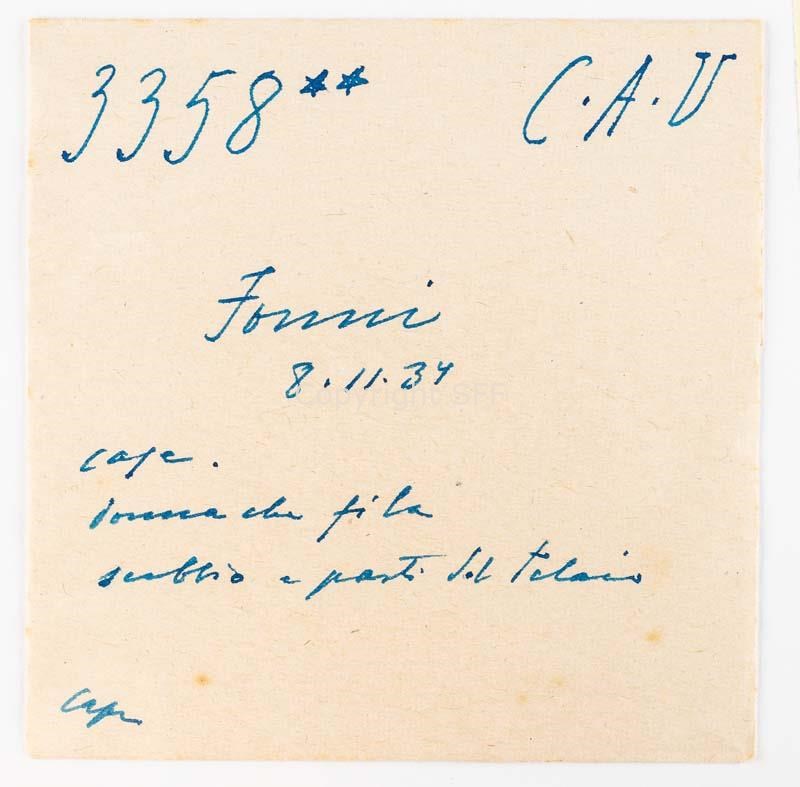 3358** C.A.V
Fonni
8.11.34
case.
donna che fila
subbio e parti del telaio
case